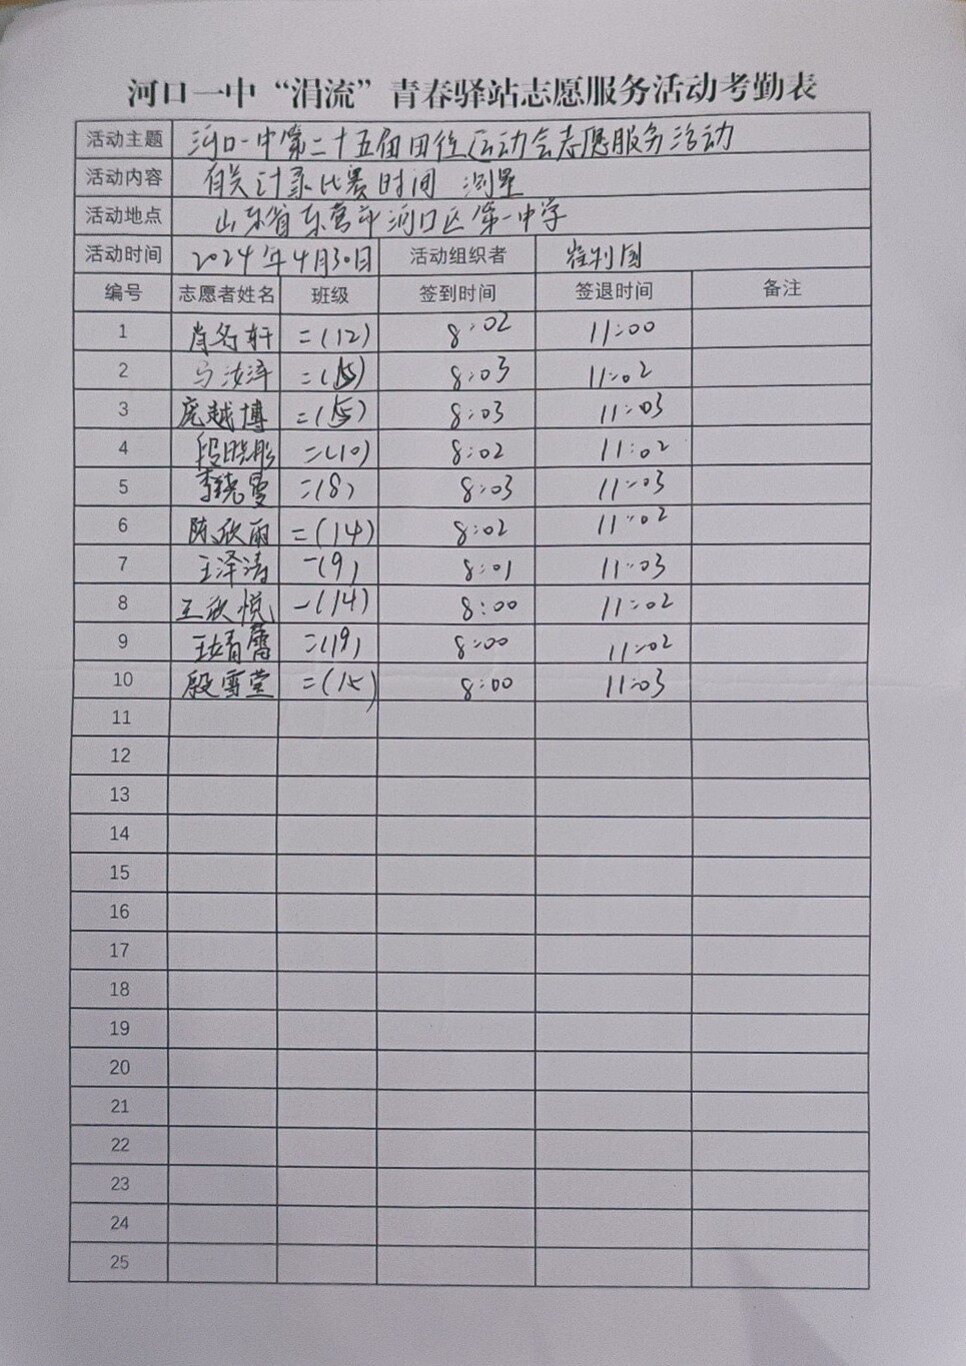 河口一中“涓流”青春驿站志愿服务活动考勤表
活动主题 河口一中第二十五届田径运动会志愿服务活动
活动内容 有关计录比赛时间 测量
活动地点 山东省东营市河口区第一中学
活动时间 2024年4月30日 活动组织者 崔利国
编号 志愿者姓名 班级 签到时间 签退时间 备注
1 肖名轩 二(12) 8:02 11:00
2 马汝泽 二(15) 8:03 11:02
3 庞越博 二(15) 8:03 11:03
4 段晓彤 二(10) 8:02 11:02
5 李晓曼 二(8) 8:03 11:03
6 陈欣雨 二(14) 8:02 11:02
7 王泽涛 一(9) 8:01 11:03
8 王欣悦 一(14) 8:00 11:02
9 二(19) 8:00 11:02
10 殷雪莹 二(15) 8:00 11:03
11
12
13
14
15
16
17
18
19
20
21
22
23
24
25